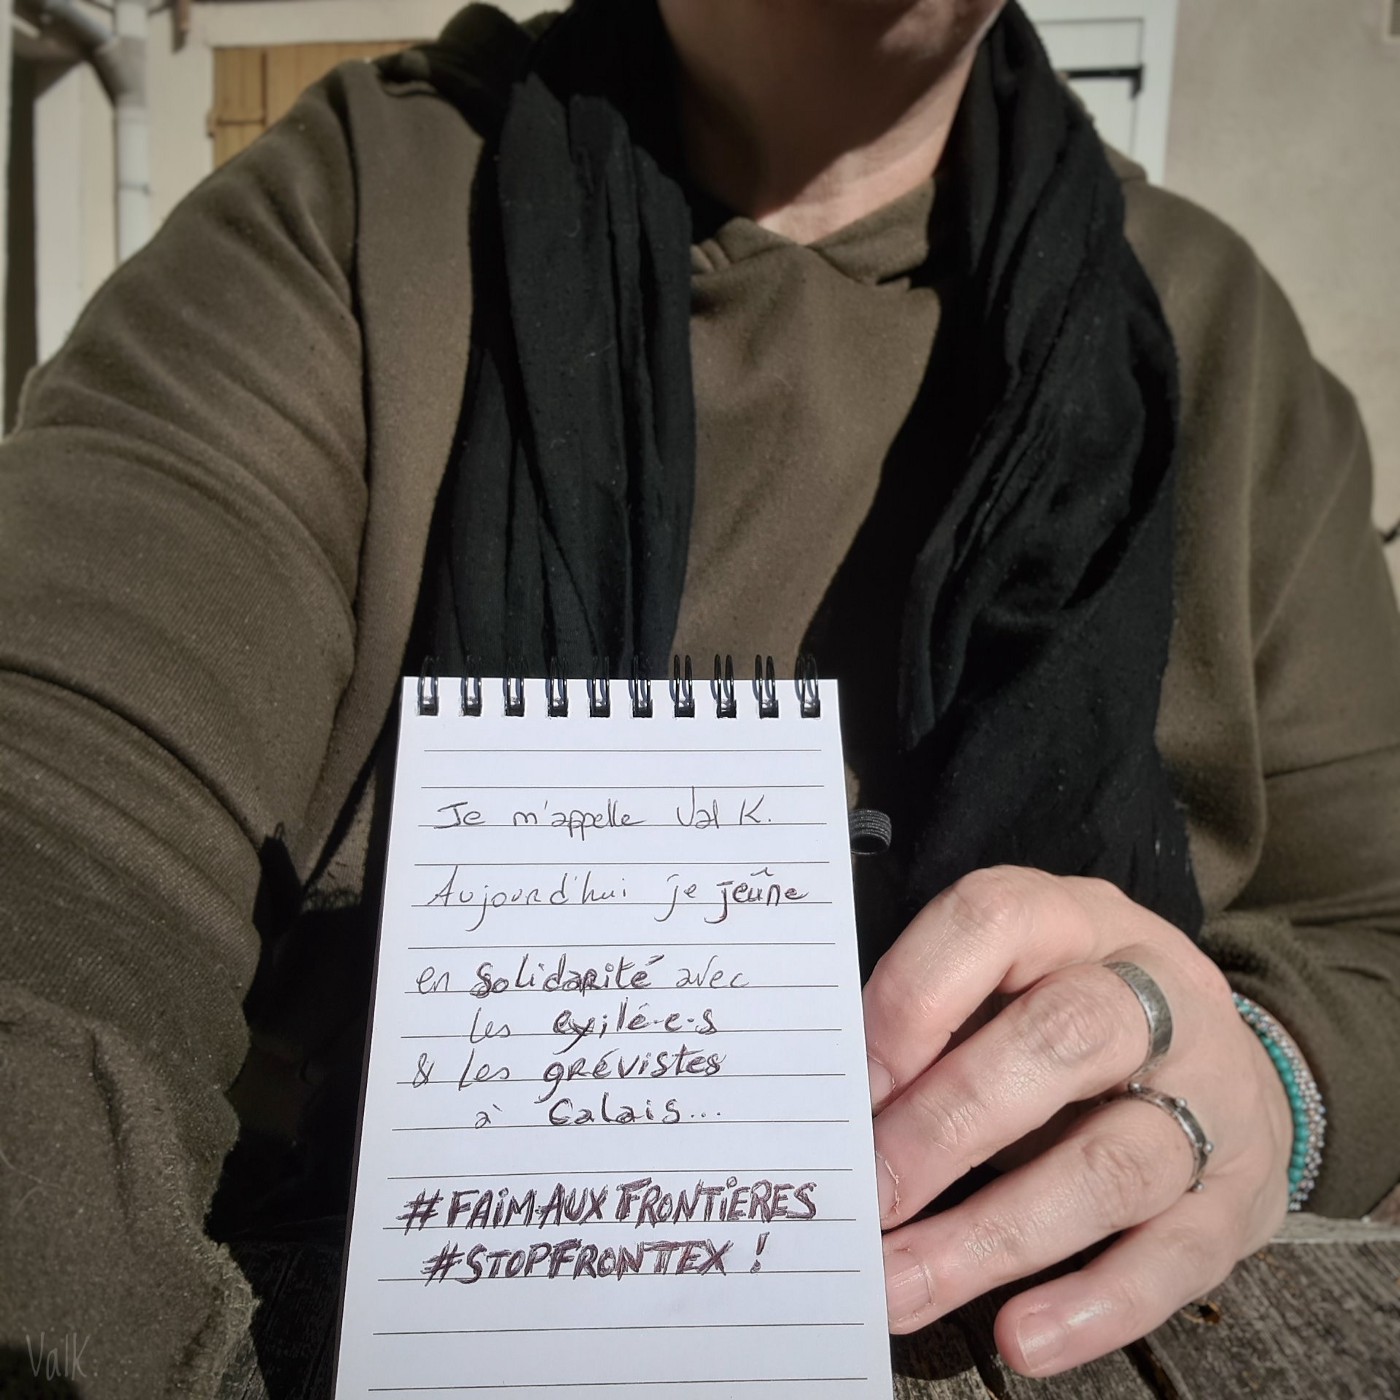 Je m'appelle Val K.
Aujourd'hui je jeûne
en solidarité avec
les exilé·e·s
& les grévistes
à Calais...
#FAIMAUXFRONTIERES
#STOPFRONTEX !
ValK.